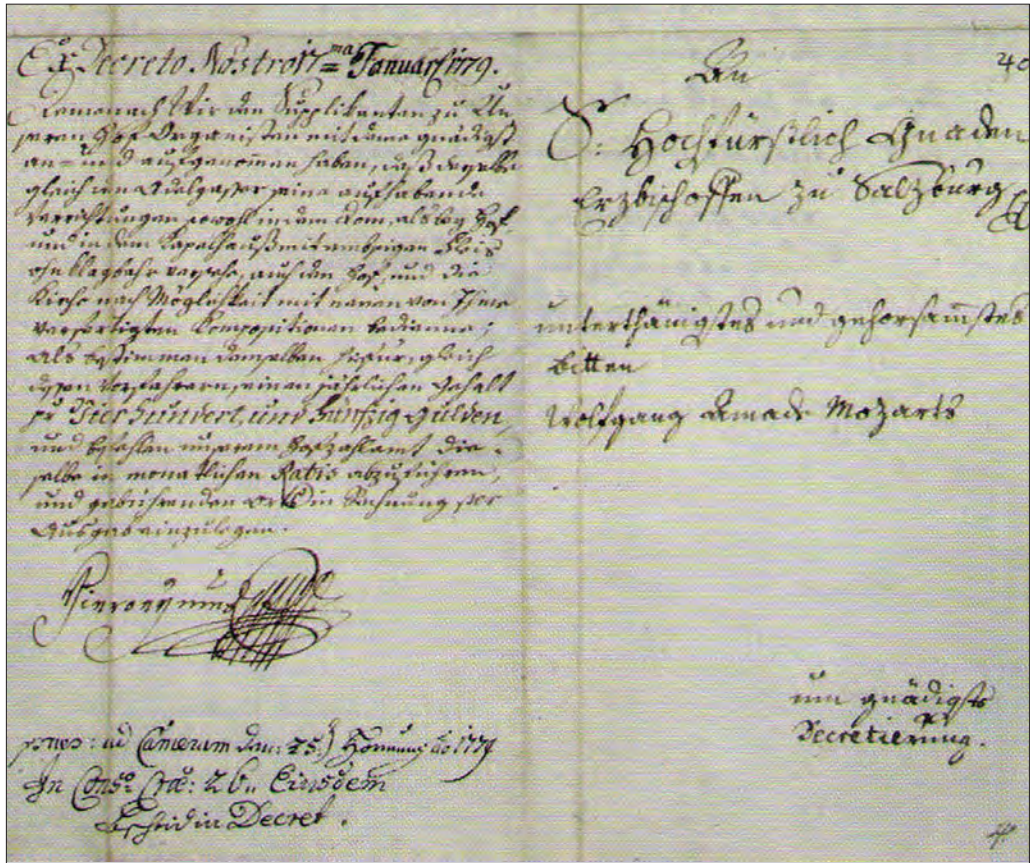 Ex Decreto Nostro 17=ma Januarÿ 1779.
Demenach Wir den Supplikanten zu Un-
seren Hof-Organisten mit deme gnädigst
an- und aufgenommen haben, daß derselbe
gleich dem Adlgasser seine aufhabende
Verrichtungen sowohl in dem Dom, als beÿ Hof,
und in dem Kapelhauß mit embsigen Fleis
ohnklagbahr versehe, auch den Hof, und die
Kirche nach Möglichkeit mit neuen von Ihme
verfertigten Kompositionen bediene;
Als bestimmen demselben hiefür, gleich
dessen Vorfahrern, einen jährlichen Gehalt
pr Vierhundert, und Fünfzig Gulden,
und befehlen unserem Hofzahlamt die-
selbe in monatlichen Ratis abzuführen,
und gebührenden Orts in Rechnung per
Ausgab einzulegen.
Hieronymus
ad Cameram den: 25: Hornung ao 1779
In Cons: Cae: 26. Eiusdem
Bscheid in Decret.
40
An
S: Hochfürstlich Gnaden
Erzbischoffen zu Salzburg
unterthänigstes und gehorsammstes
bitten
Wolfgang Amade Mozarts
um gnädigste
Decretierung.